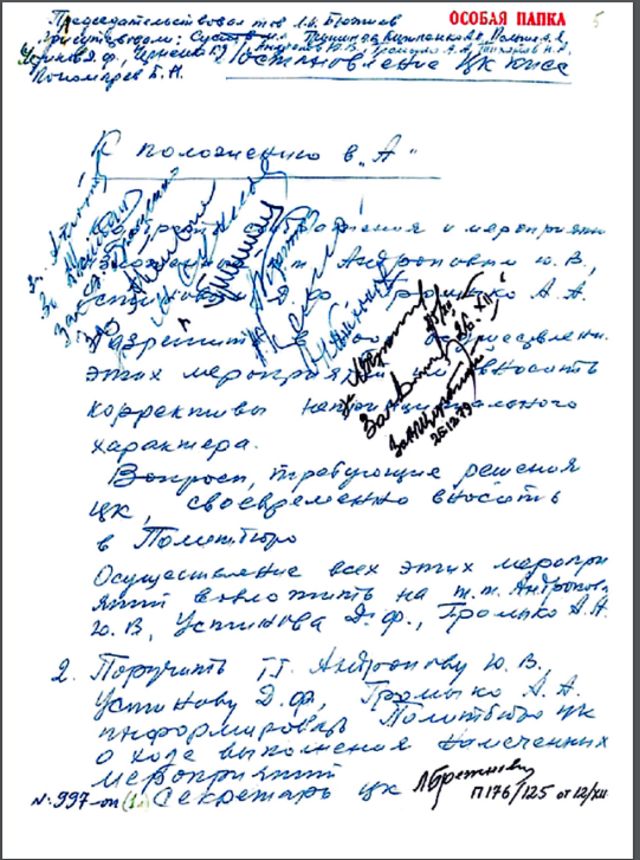 Председательствовал тов. Л.И. Брежнев
ОСОБАЯ ПАПКА
5
Присутствовали: Суслов М.А., Гришин В.В., Кириленко А.П., Пельше А.Я.,
Устинов Д.Ф., Черненко К.У., Андропов Ю.В., Громыко А.А., Тихонов Н.А.,
Пономарев Б.Н.
Постановление ЦК КПСС
К положению в „А“
1. Одобрить соображения и мероприятия,
изложенные т.т. Андроповым Ю.В.,
Устиновым Д.Ф., Громыко А.А.
Разрешить в ходе осуществления
этих мероприятий им вносить
коррективы непринципиального
характера.
Вопросы, требующие решения
ЦК, своевременно вносить
в Политбюро
Осуществление всех этих меропри
ятий возложить на т.т. Андропова
Ю.В., Устинова Д.Ф., Громыко А.А.
25/XII
26.XII
За Щербицкий
26.12.79
2. Поручить т.т. Андропову Ю.В.,
Устинову Д.Ф., Громыко А.А.
информировать Политбюро ЦК
о ходе выполнения намеченных
мероприятий
Секретарь ЦК Л Брежнев
№ 997-оп (1л)
П 176/125 от 12/XII